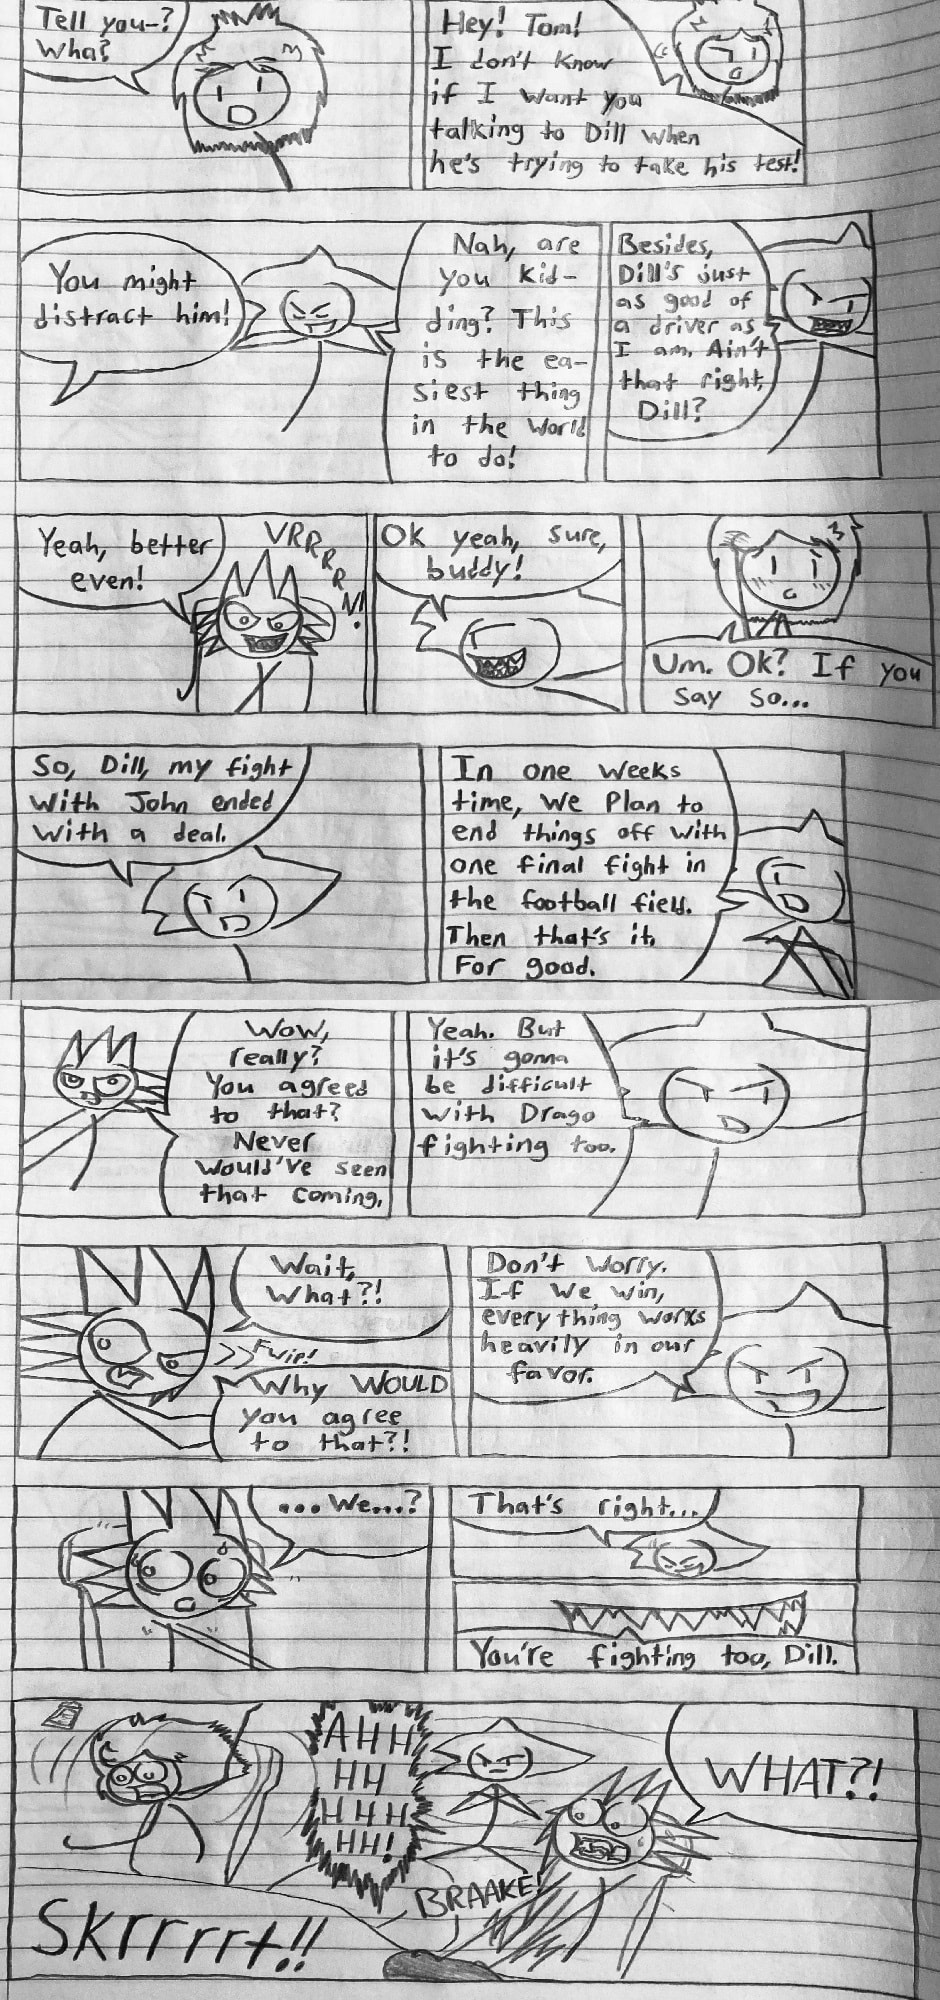 Tell you-?
Wha?
Hey! Tom!
I don't know
if I want you
talking to Dill when
he's trying to take his test!
You might
distract him!
Nah, are
you kid-
ding? This
is the ea-
siest thing
in the world
to do!
Besides,
Dill's just
as good of
a driver as
I am. Ain't
that right,
Dill?
Yeah, better
even!
VRRRRN!
Ok yeah, sure,
buddy!
Um. Ok? If you
say so...
So, Dill, my fight
with John ended
with a deal.
In one weeks
time, we plan to
end things off with
one final fight in
the football field.
Then that's it.
For good.
Wow,
really?
You agreed
to that?
Never
would've seen
that coming.
Yeah. But
it's gonna
be difficult
with Drago
fighting too.
Wait,
what?!
Fwip!
Why WOULD
you agree
to that?!
Don't worry.
If we win,
everything works
heavily in our
favor.
...We...?
That's right...
You're fighting too, Dill.
AHH
HH
HHH
HH!
WHAT?!
BRAAKE!
Skrrrrt!!